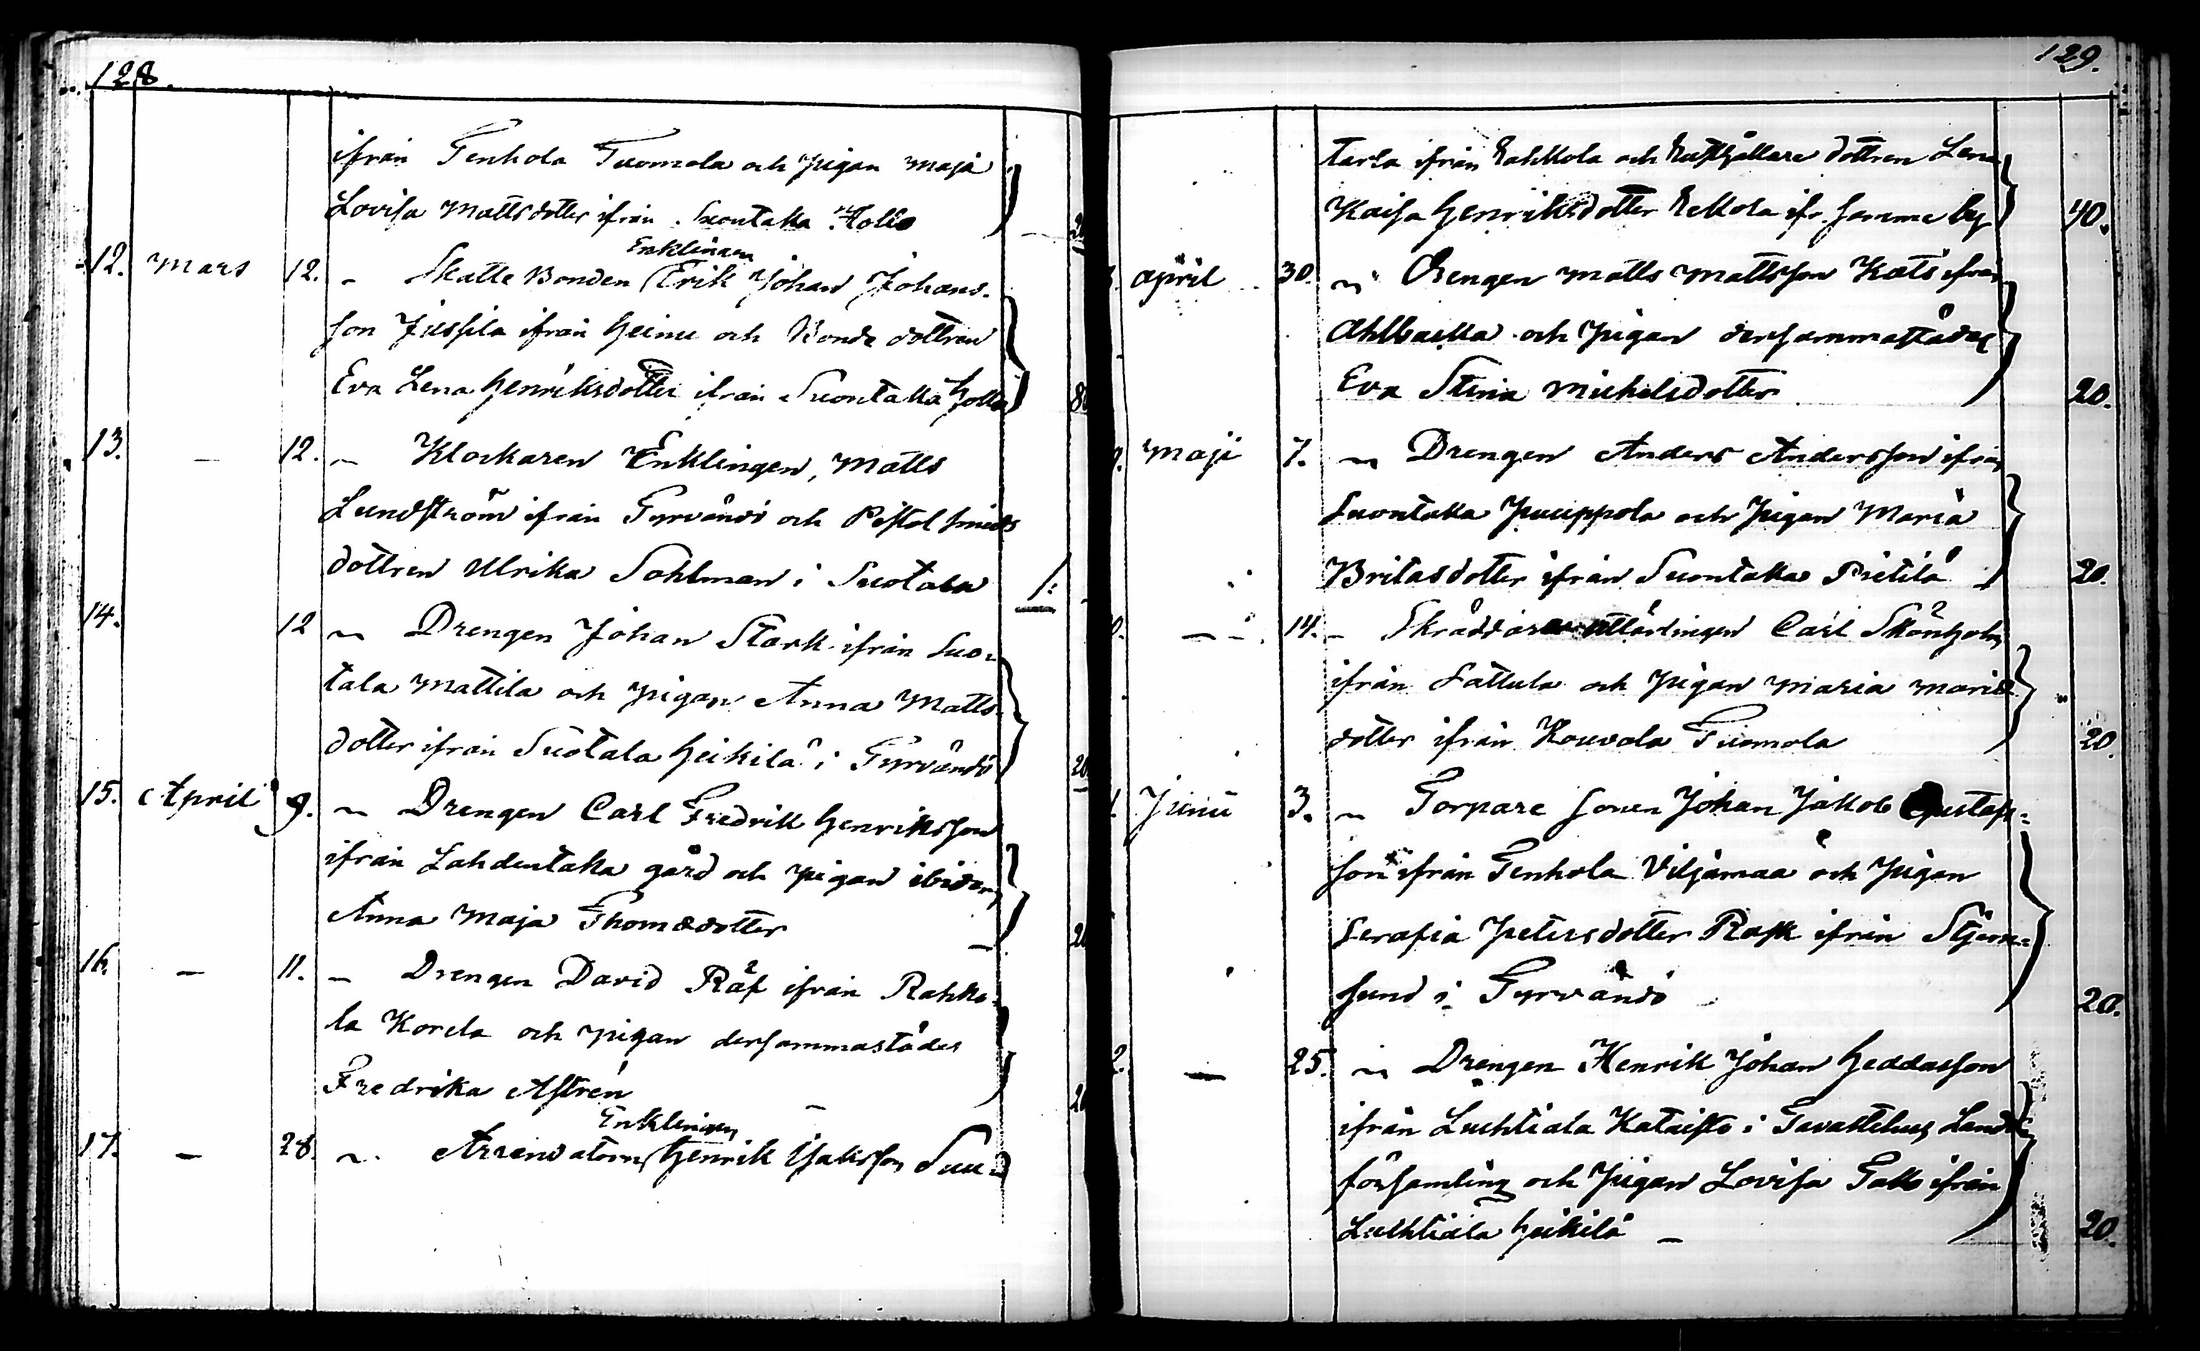 128.
ifrån Tenhola Tuomola och pigan Maja
Lovisa Mattsdotter ifrån Suontaka Kollo
12. Mars 12. " Skatte Bonden (Enklingen) Erik Johan Johans-
son Jussila ifrån Heinu och Bonde dottren
Eva Lena Henriksdotter ifrån Suontaka Hollo 80
13. — 12. " Klockaren Enklingen, Matts
Lundström ifrån Tyrvändö och Pistol smeds
dottren Ulrika Sohlman i Suotala 1:
14. 12 " Drengen Johan Stark ifrån Suo-
tala Mattila och pigan Anna Matts-
dotter ifrån Suotala Heikilä i Tyrvändö 20
15. April 9. " Drengen Carl Fredrik Henriksson
ifrån Lahdentaka gård och pigan ibidem
Anna Maja Thomædotter — 20
16. — 11. " Drengen David Räf ifrån Rahko-
la Korela och pigan dersammastädes
Fredrika Astrén 20
17. — 28. " Arrendatorn (Enklingen) Henrik Isaksson Suu-
129.
tarla ifrån Rahkola och Rusthållare dottren Lena
Kaisa Henriksdotter Eekola ifr. samme by 40.
April 30. " Drengen Matts Mattsson Kats ifrån
Ahlbacka och pigan dersammastädes
Eva Stina Michelsdotter 20.
Maji 7. " Drengen Anders Andersson ifrån
Suontaka Puuppola och pigan Maria
Britasdotter ifrån Suontaka Pietilä 20.
— 14. " Skräddare lärlingen Carl Skönholm
ifrån Sattula och pigan Maria Mariæ
dotter ifrån Kouvola Tuomola 20
Junii 3. " Torpare sonen Johan Jakob Gustafs-
son ifrån Tenhola Viljamaa och pigan
Serafia Petersdotter Rask ifrån Stjern-
sund i Tyrvändö 20.
2. — 25. " Drengen Henrik Johan Heddasson
ifrån Luhtiala Kataisto i Tavastehus Lands
församling och pigan Lovisa Gabr ifrån
Luhtiala Heikilä — 20.